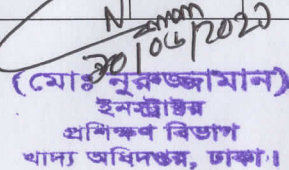 30/06/2020
(মোঃ নুরুজ্জামান)
ইনস্ট্রাক্টর
প্রশিক্ষণ বিভাগ
খাদ্য অধিদপ্তর, ঢাকা।